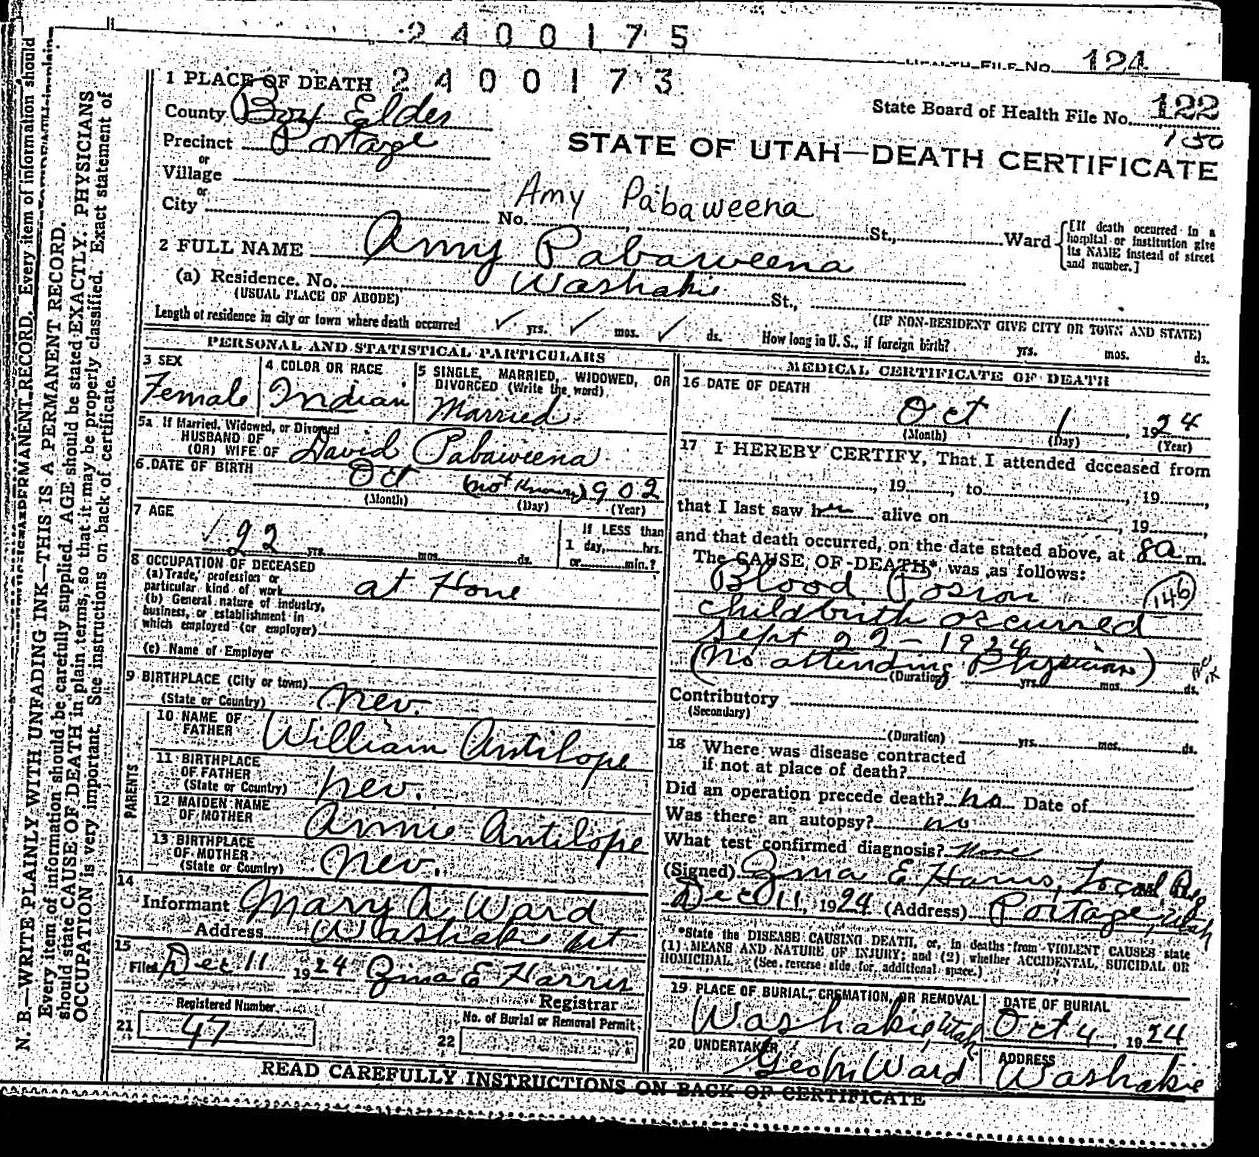 2400175
HEALTH FILE No. 124
2400173
1 PLACE OF DEATH
State Board of Health File No. 122
150
County Box Elder
Precinct Portage
STATE OF UTAH—DEATH CERTIFICATE
or
Village
or
City
Amy Pabaweena
No. St., Ward
[If death occurred in a hospital or institution give its NAME instead of street and number.]
2 FULL NAME Amy Pabaweena
(a) Residence. No. Washakie St.,
(USUAL PLACE OF ABODE)
(IF NON-RESIDENT GIVE CITY OR TOWN AND STATE)
Length of residence in city or town where death occurred ✓ yrs. ✓ mos. ✓ ds. How long in U. S., if foreign birth? yrs. mos. ds.
PERSONAL AND STATISTICAL PARTICULARS
3 SEX
Female
4 COLOR OR RACE
Indian
5 SINGLE, MARRIED, WIDOWED, OR DIVORCED (Write the word)
Married
5a If Married, Widowed, or Divorced
HUSBAND OF
(OR) WIFE OF David Pabaweena
6 DATE OF BIRTH Oct (not known) 1902
(Month) (Day) (Year)
7 AGE
22 yrs. mos. ds.
If LESS than
1 day, hrs.
or min.?
8 OCCUPATION OF DECEASED
(a) Trade, profession or
particular kind of work at Home
(b) General nature of industry,
business, or establishment in
which employed (or employer)
(c) Name of Employer
9 BIRTHPLACE (City or town)
(State or Country) Nev.
PARENTS
10 NAME OF
FATHER William Antilope
11 BIRTHPLACE
OF FATHER
(State or Country) Nev.
12 MAIDEN NAME
OF MOTHER Annie Antilope
13 BIRTHPLACE
OF MOTHER
(State or Country) Nev.
14
Informant Mary A. Ward
Address Washakie Ut
15
Filed Dec 11 1924 Zina E Harris
Registrar
Registered Number
21 47
No. of Burial or Removal Permit
22
MEDICAL CERTIFICATE OF DEATH
16 DATE OF DEATH
Oct 1, 1924
(Month) (Day) (Year)
17 I HEREBY CERTIFY, That I attended deceased from
, 19 , to , 19 ,
that I last saw her alive on , 19 ,
and that death occurred, on the date stated above, at 8a m.
The CAUSE OF DEATH* was as follows:
Blood Posion
146
childbirth occurred
Sept 22-1924
(No attending Physician)
(Duration) yrs. mos. ds.
Contributory
(Secondary)
(Duration) yrs. mos. ds.
18 Where was disease contracted
if not at place of death?
Did an operation precede death? No Date of
Was there an autopsy? no
What test confirmed diagnosis? None
(Signed) Zina E. Harris, Local Reg
Dec 11, 1924 (Address) Portage, Utah
*State the DISEASE CAUSING DEATH, or, in deaths from VIOLENT CAUSES state
(1) MEANS AND NATURE OF INJURY; and (2) whether ACCIDENTAL, SUICIDAL OR
HOMICIDAL. (See reverse side for additional space.)
19 PLACE OF BURIAL, CREMATION, OR REMOVAL
Washakie, Utah
DATE OF BURIAL
Oct 4, 1924
20 UNDERTAKER
Geo M Ward
ADDRESS
Washakie
READ CAREFULLY INSTRUCTIONS ON BACK OF CERTIFICATE
N. B.—WRITE PLAINLY WITH UNFADING INK—THIS IS A PERMANENT RECORD.
Every item of information should be carefully supplied. AGE should be stated EXACTLY. PHYSICIANS
should state CAUSE OF DEATH in plain terms, so that it may be properly classified. Exact statement of
OCCUPATION is very important. See instructions on back of certificate.